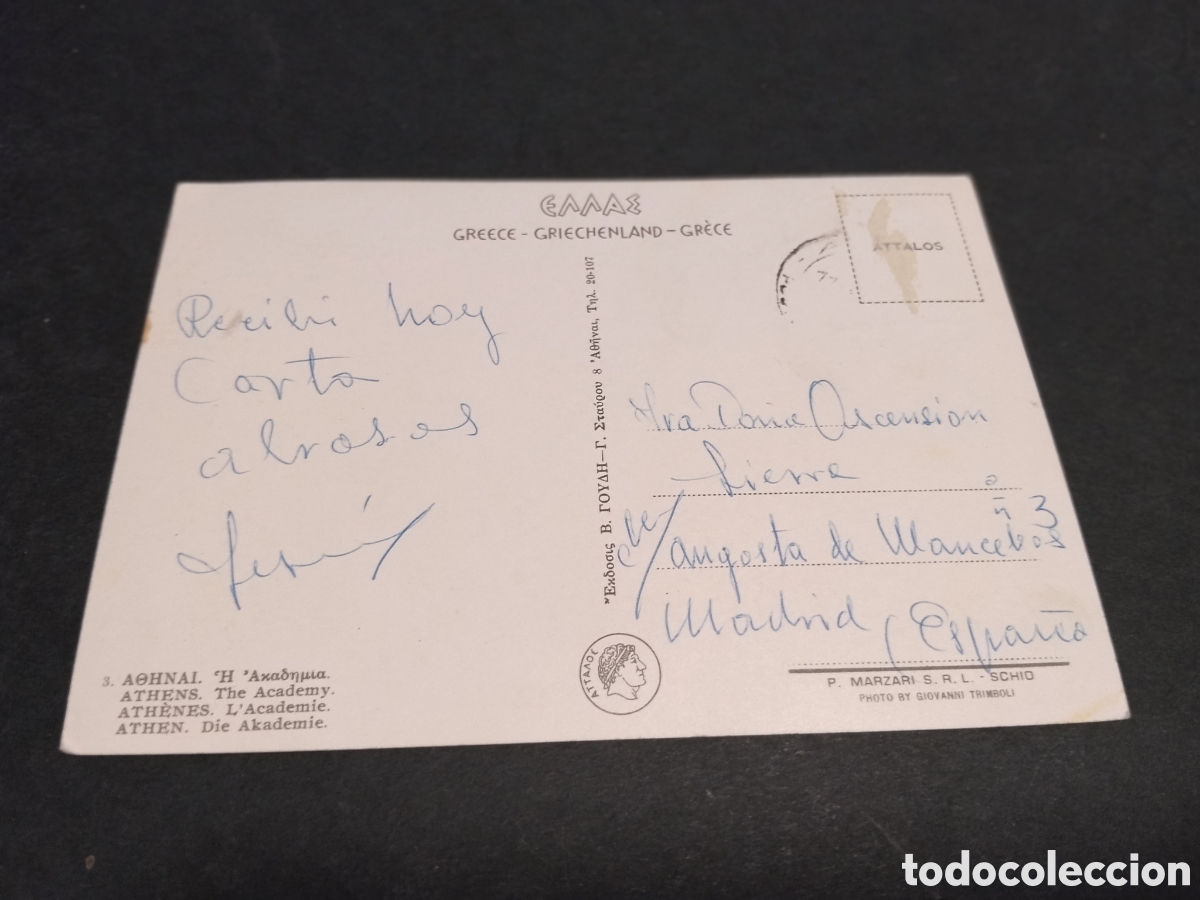 ΕΛΛΑΣ
GREECE - GRIECHENLAND - GRÈCE
ATTALOS
Recibi hoy
Carta
abrosos
Ἔκδοσις Β. ΓΟΥΔΗ—Γ. Σταύρου 8 Ἀθῆναι, Τηλ. 20-107
Sra Doña Ascension
Sierra
angosta de Mancebos nº 3
Madrid (España
ΑΤΤΑΛΟΣ
3. ΑΘΗΝΑΙ. Ἡ Ἀκαδημια.
ATHENS. The Academy.
ATHÈNES. L'Academie.
ATHEN. Die Akademie.
P. MARZARI S.R.L. - SCHIO
PHOTO BY GIOVANNI TRIMBOLI
todocoleccion